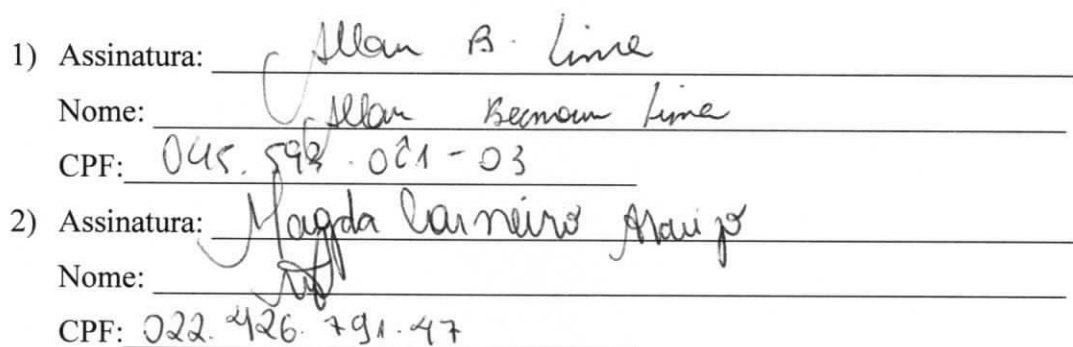 1) Assinatura: Allan B. Lima
Nome: Allan Lima
CPF: 045. 593 . 021 - 03
2) Assinatura: Magda Carneiro Araujo
Nome:
CPF: 022. 426. 791. 47